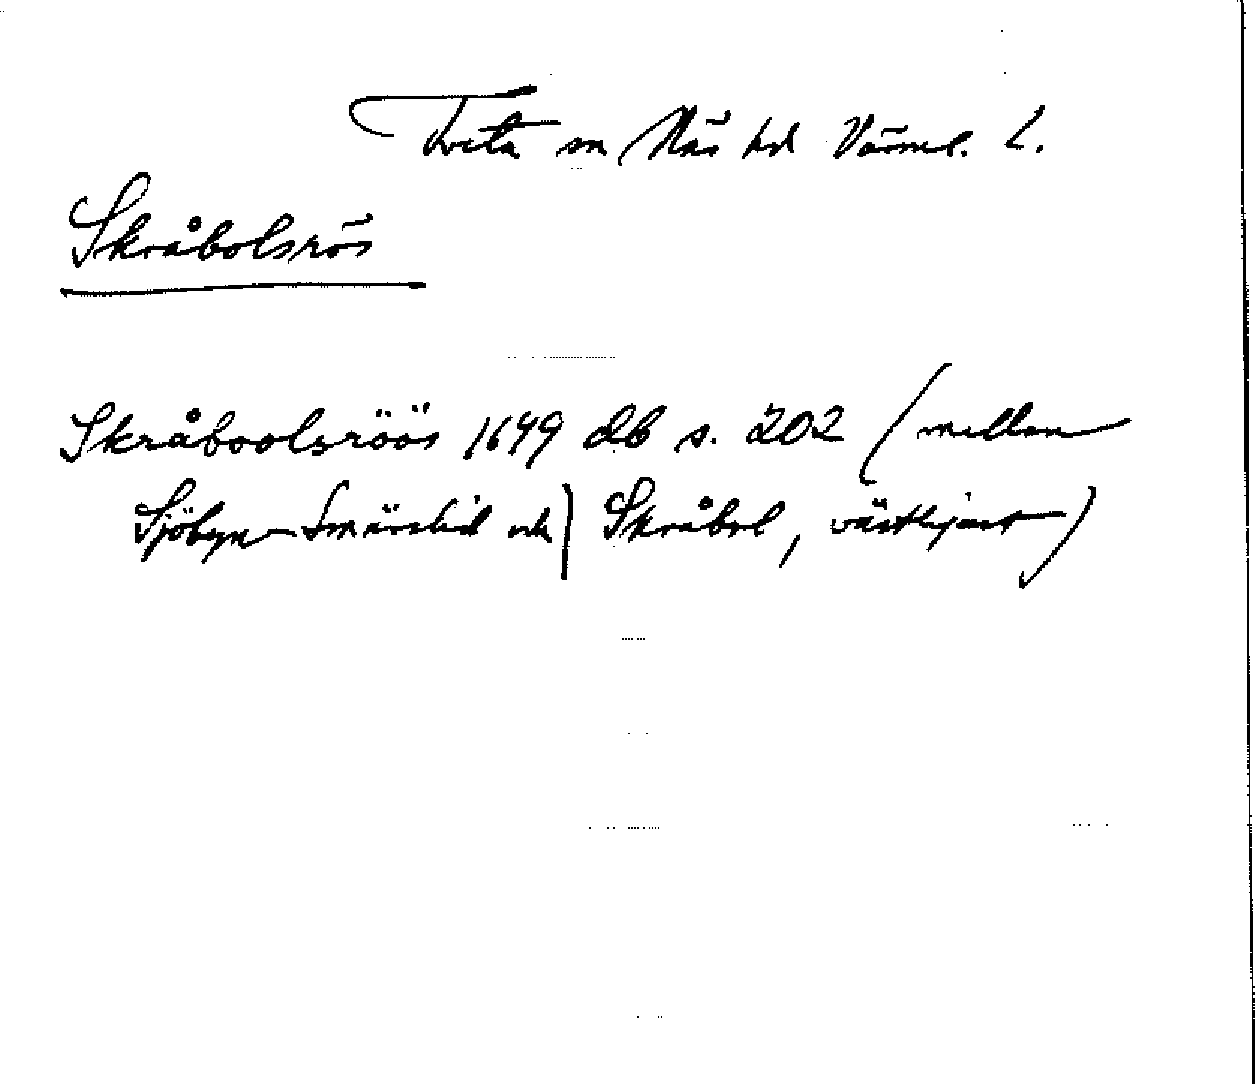 Tveta sn Näs hd Värml. L.
Skråbolsrös
Skråboolsröös 1649 db s. 202 (mellan
Sjöbyn Smärslid och) Skråbol, västligast)